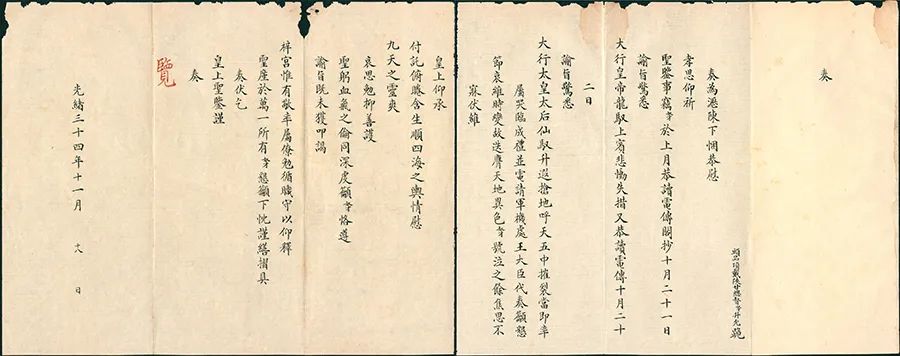 奏
頭品頂戴陝甘總督奴才升允跪
奏為瀝陳下悃恭慰
孝思仰祈
聖鑒事竊奴才於上月恭讀電傳閣抄十月二十一日
諭旨驚悉
大行皇帝龍馭上賓悲慟失措又恭讀電傳十月二十
二日
諭旨驚悉
大行太皇太后仙馭升遐搶地呼天五中摧裂當即率
屬哭臨成禮並電請軍機處王大臣代奏籲懇
節哀維時變故迭膺天地異色奴才號泣之餘焦思不
寐伏維
皇上仰承
付託俯瞻含生順四海之輿情慰
九天之靈爽
哀思勉抑善護
聖躬血氣之倫同深虔籲奴才恪遵
諭旨既未獲叩謁
梓宮惟有敬率屬僚勉循職守以仰釋
聖廑於萬一所有奴才懇籲下忱謹繕摺具
奏伏乞
皇上聖鑒謹
奏
覽
光緒三十四年十一月 十八 日